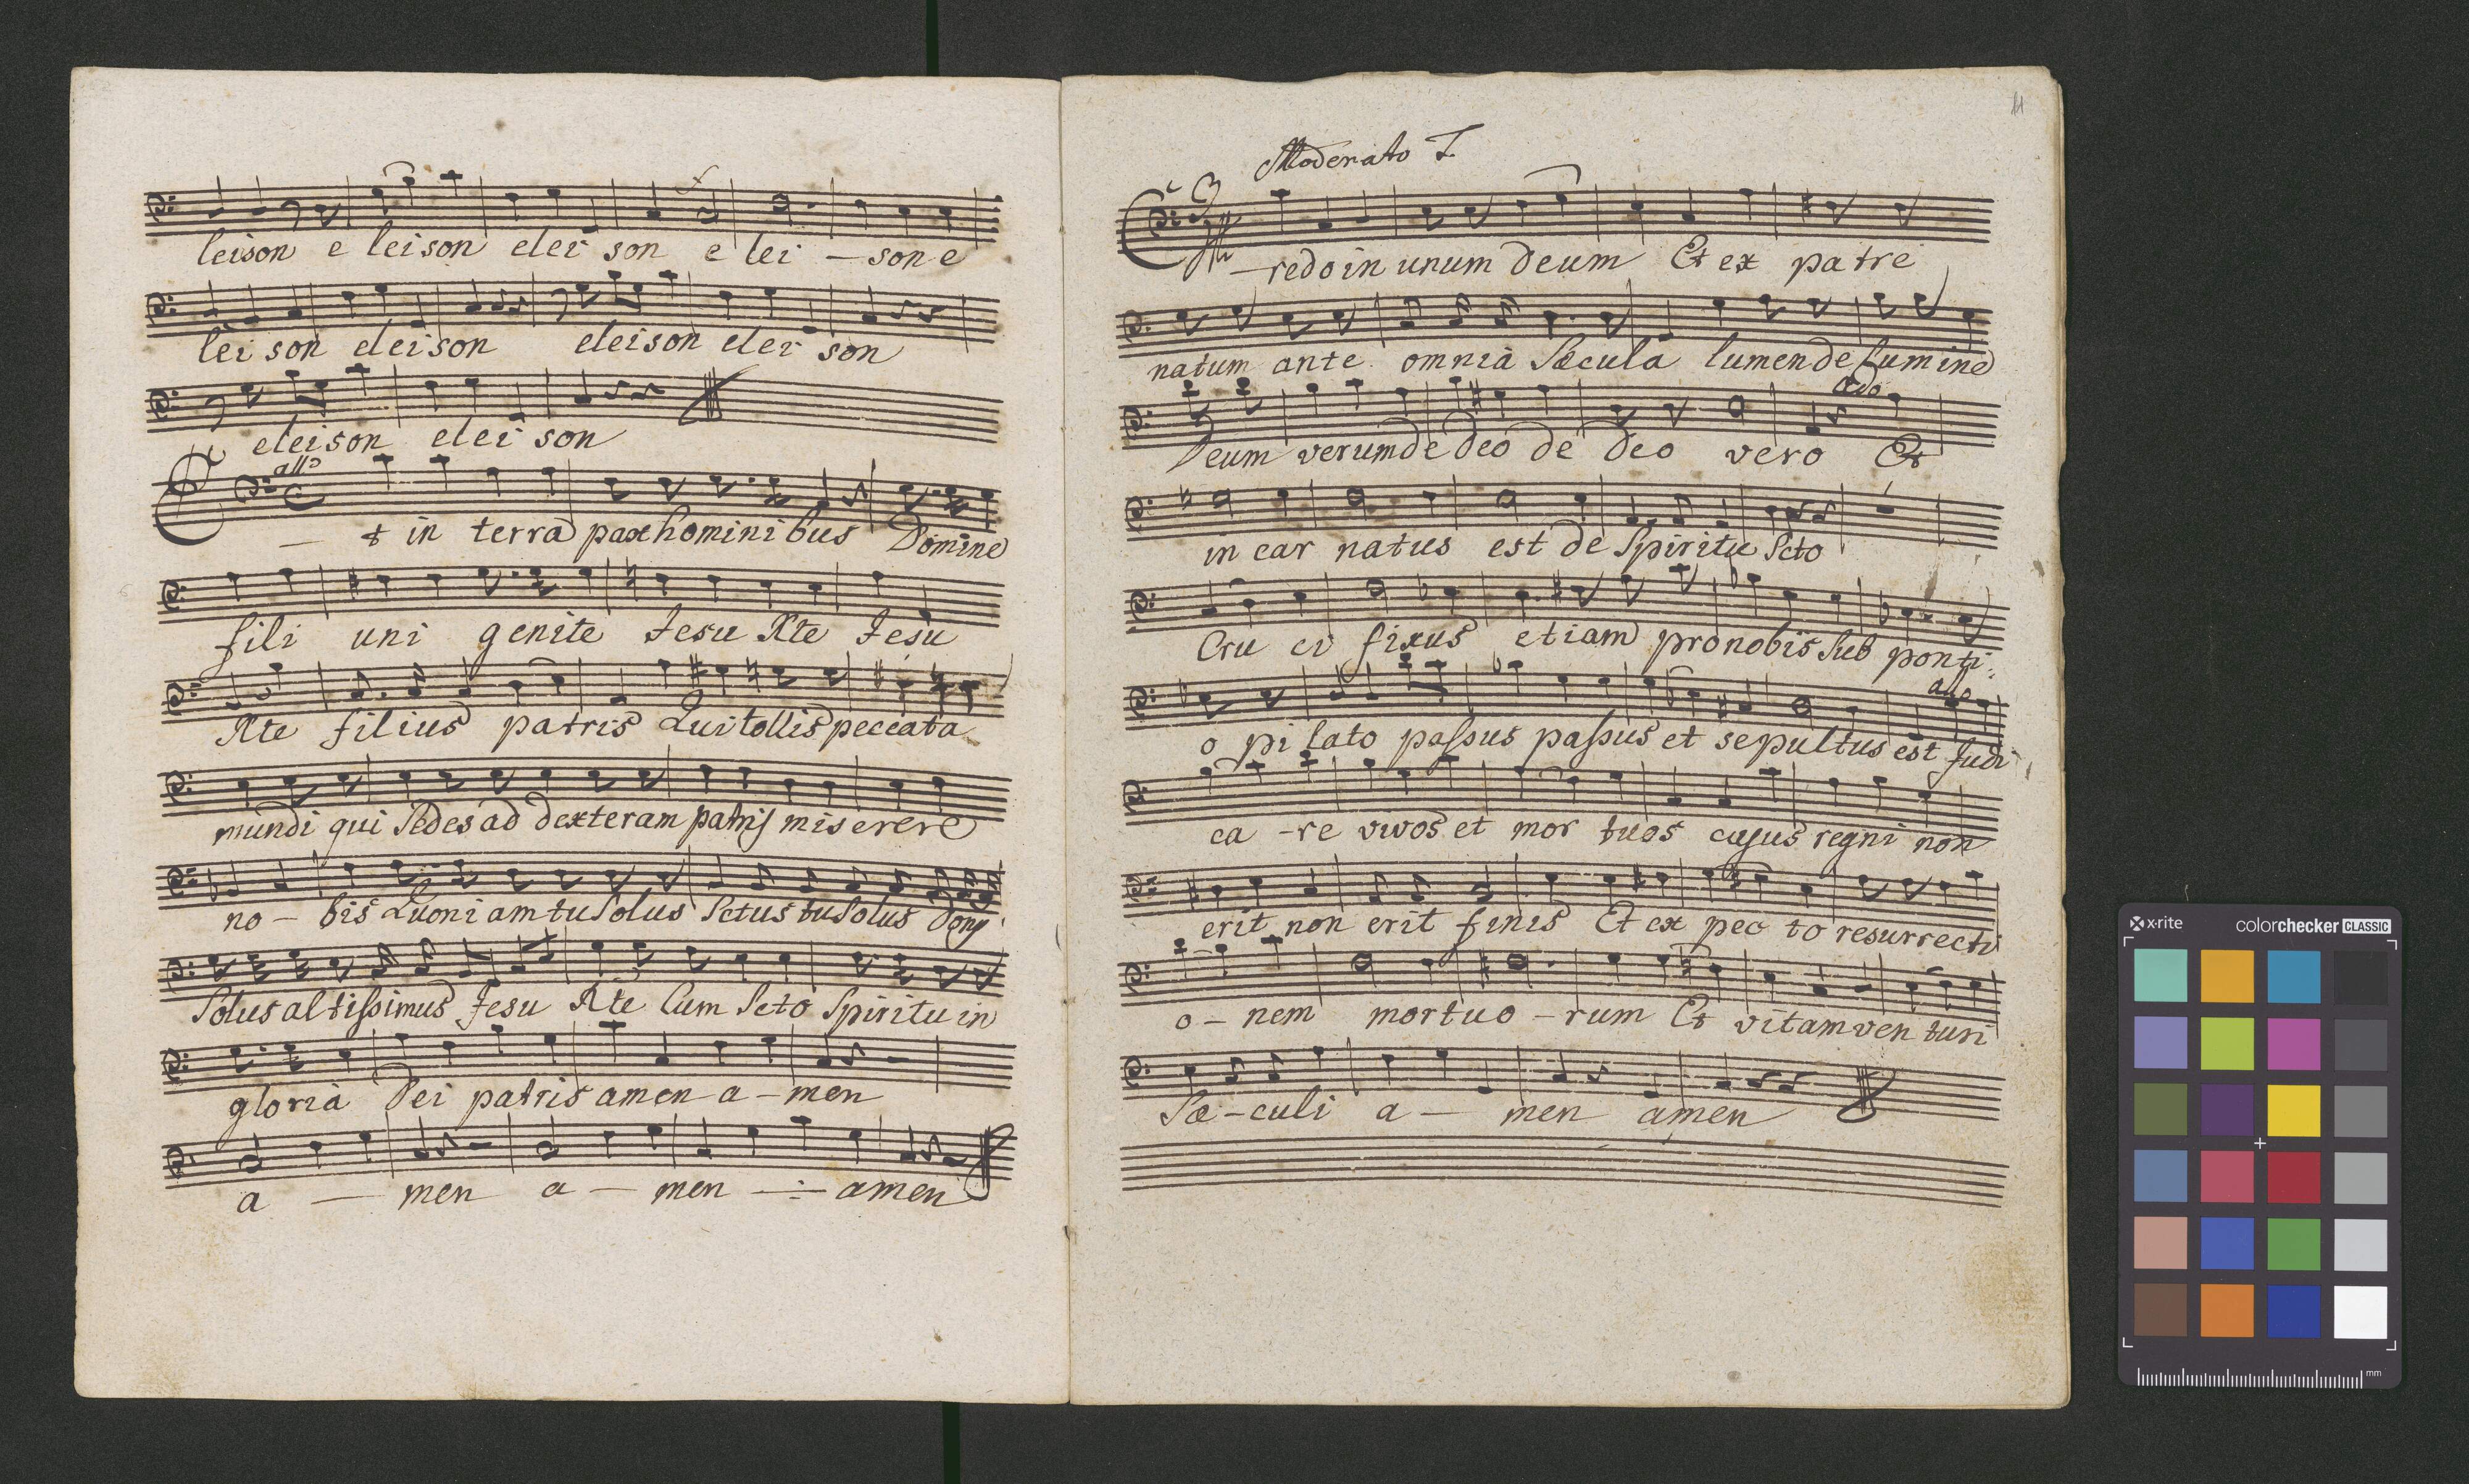 leison e leison elei son e lei - son e
lei son eleison eleison elei son
eleison elei son
allo
Et in terra pax hominibus Domine
fili uni genite Jesu Xte Jesu
Xte filius patris Qui tollis peccata
mundi qui Sedes ad dexteram patris miserere
no - bis Quoniam tu Solus Sctus tu Solus Dom
Solus altissimus Jesu Xte Cum Scto Spiritu in
gloria Dei patris amen a - men
a - men a - men - amen
11
Moderato
Credo in unum Deum Et ex patre
natum ante omnia Sæcula lumen de lumine
ado
Deum verum de deo de Deo vero Et
in car natus est de Spiritu Scto
Cru ci fixus etiam pro nobis Sub ponti
allo
o pi lato passus passus et sepultus est Judi
ca - re vivos et mor tuos cujus regni non
erit non erit finis Et ex pec to resurrecti
o - nem mortuo - rum Et vitam ven turi
Sæ - culi a - men amen
x-rite colorchecker CLASSIC
mm